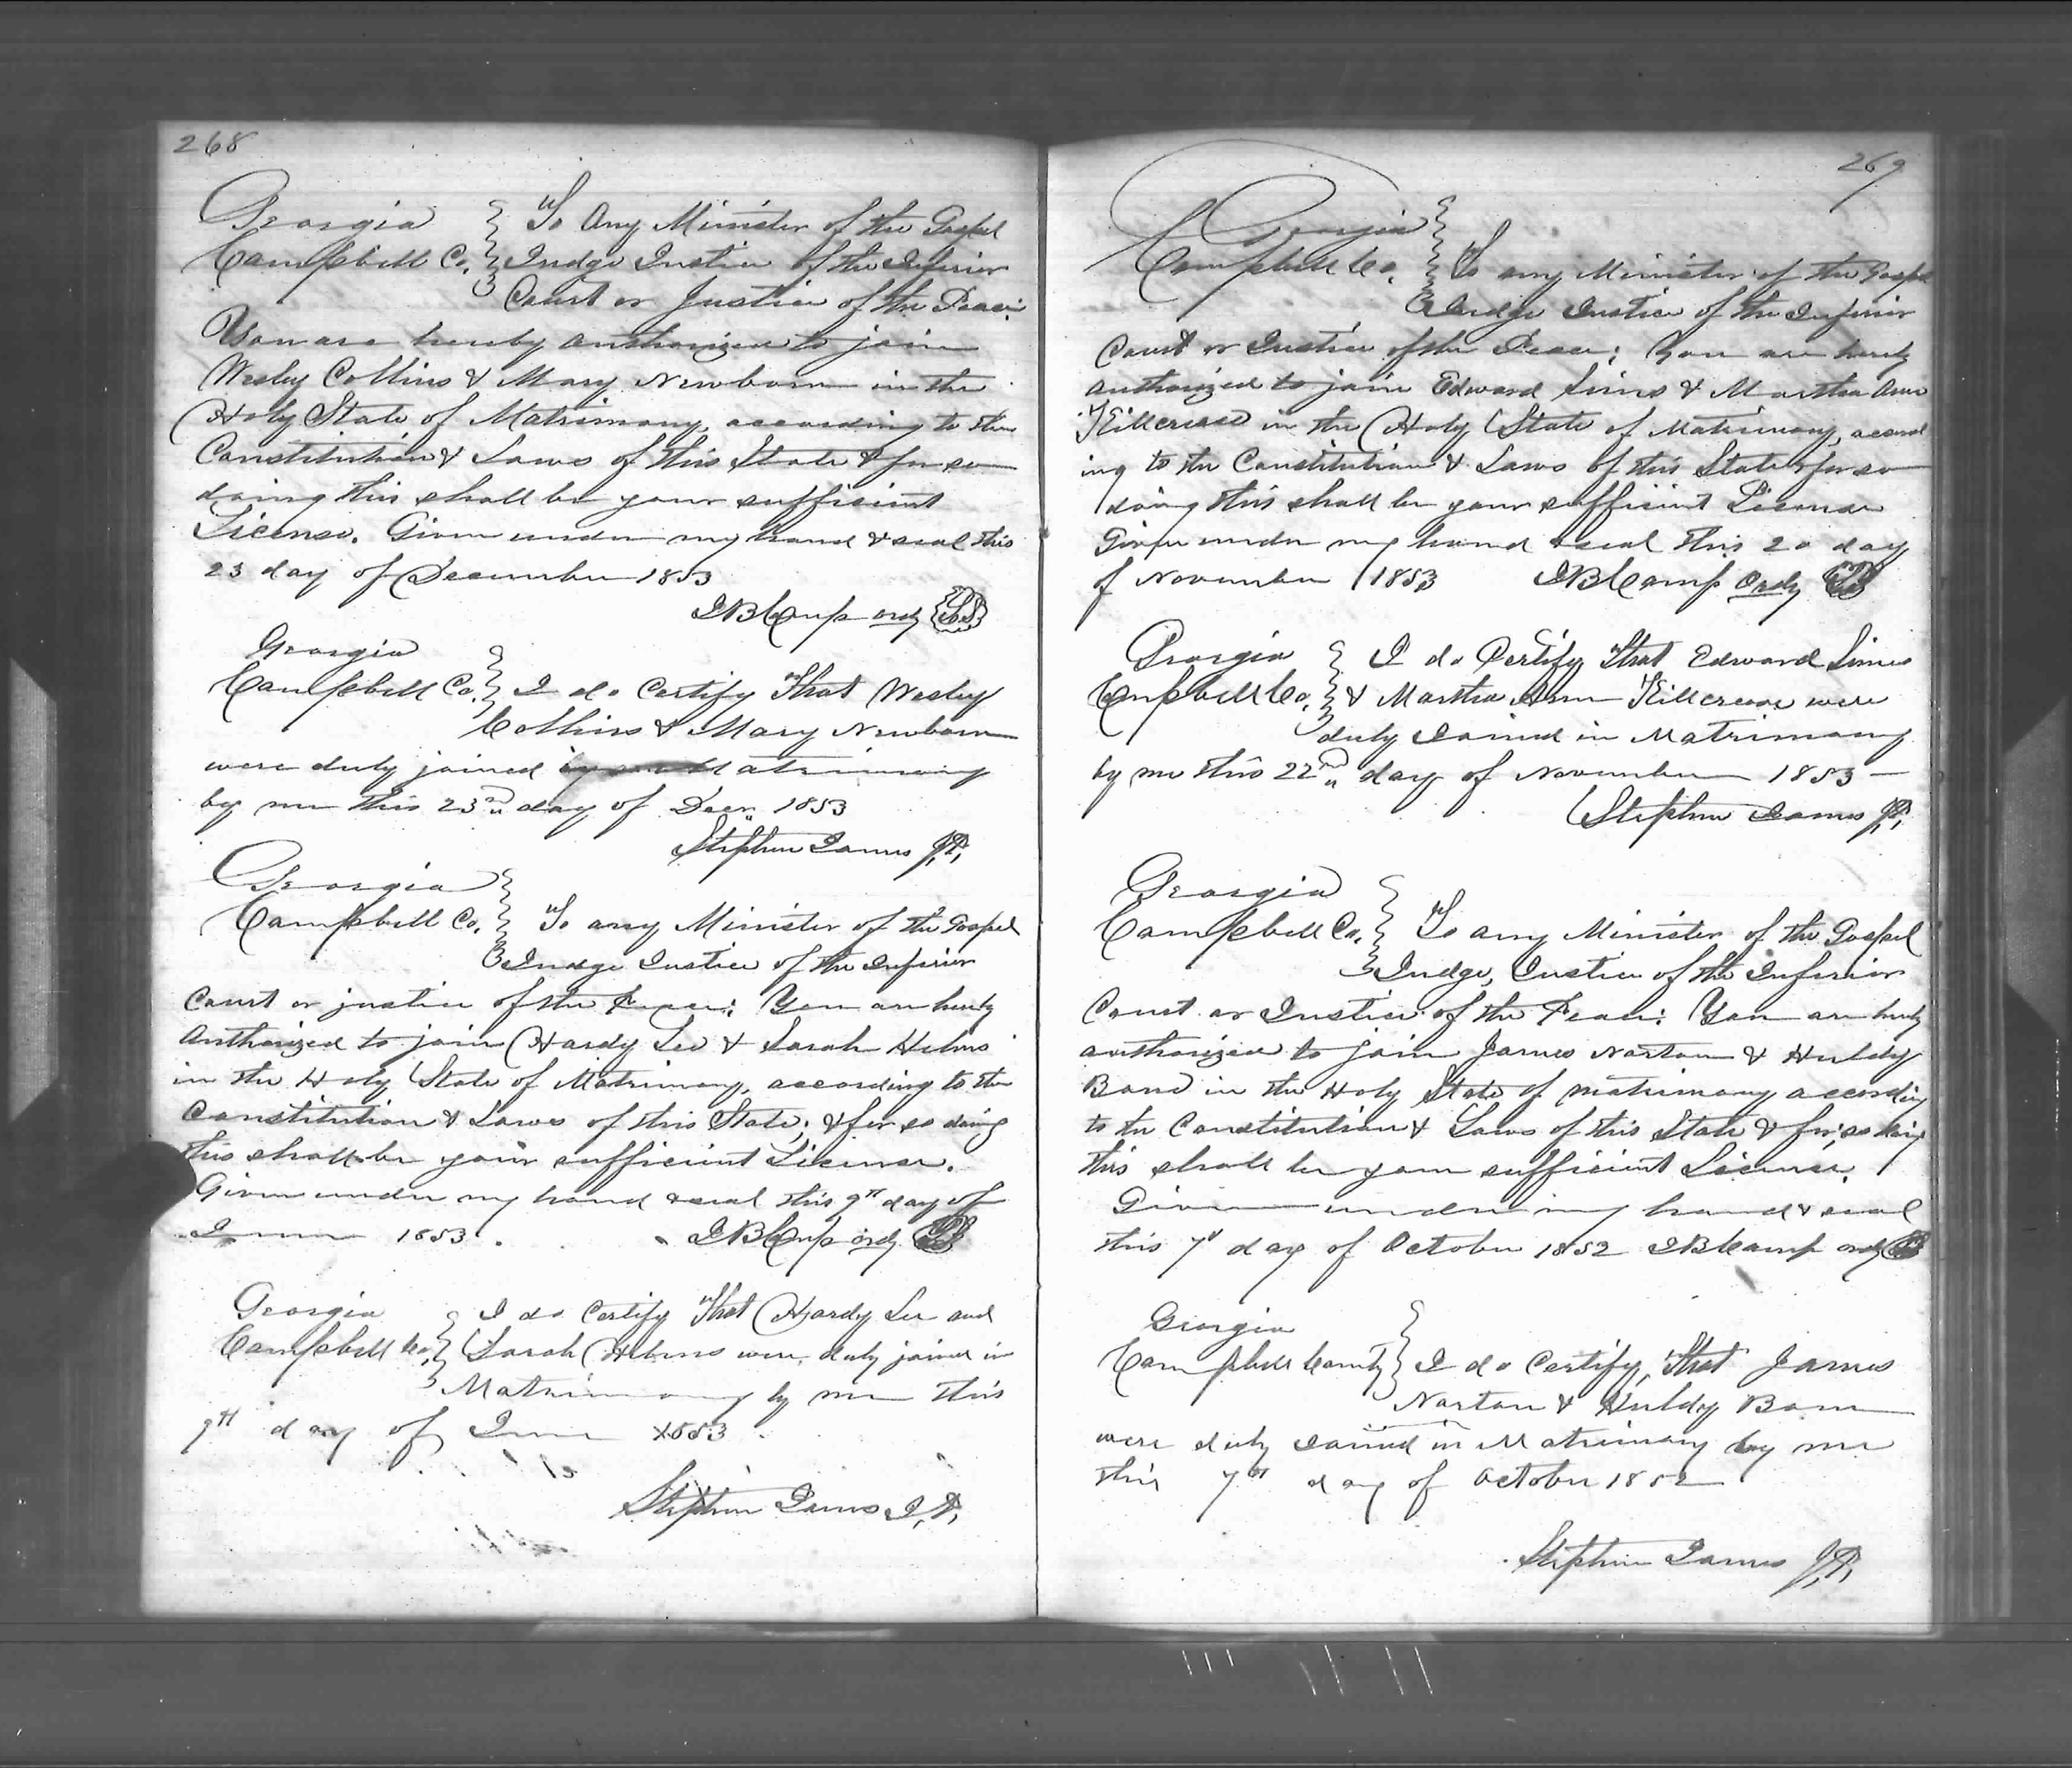 268
Georgia
Campbell Co.
To Any Minister of the Gospel
Judge Justice of the Inferior
Court or Justice of the Peace
You are hereby authorized to join
Wesley Collins & Mary Newborn in the
Holy State of Matrimony, according to the
Constitution & Laws of this State & for so
doing this shall be your sufficient
License. Given under my hand & seal this
23 day of December 1853
JB Camp ordy LS
Georgia
Campbell Co. I do Certify That Wesley
Collins & Mary Newborn
were duly joined Matrimony
by me this 23rd day of Decr. 1853
Stephen James J.P.
Georgia
Campbell Co. To any Minister of the Gospel
Judge Justice of the Inferior
Court or justice of the Peace: You are hereby
Authorized to join Hardy Lee & Sarah Helms
in the Holy State of Matrimony, according to the
Constitution & Laws of this State; & for so doing
this shall be your sufficient License.
Given under my hand & seal this 9th day of
June 1853. JB Camp ordy LS
Georgia
I do Certify That Hardy Lee and
Campbell Co. Sarah Helms were duly joined in
Matrimony by me This
9th day of June 1853.
Stephen James J.P.
269
Georgia
Campbell Co. To any Minister of the Gospel
Judge Justice of the Inferior
Court or Justice of the Peace; You are hereby
authorized to join Edward Sims & Martha Ann
Killcrease in the Holy State of Matrimony, accord
ing to the Constitution & Laws of this State & for so
doing this shall be your sufficient License
Given under my hand & seal this 20 day
of November 1853 JB Camp Ordy LS
Georgia I do Certify That Edward Sims
Campbell Co. & Martha Ann Killcrease were
duly Joined in Matrimony
by me this 22nd day of November 1853 —
Stephen James J.P.
Georgia
Campbell Co. To any Minister of the Gospel
Judge, Justice of the Inferior
Court or Justice of the Peace: You are hereby
authorized to join James Norton & Huldy
Bone in the Holy State of matrimony according
to the Constitution & Laws of this State & for so doing
this shall be your sufficient License.
Given under my hand & seal
this 7th day of October 1852 JB Camp ordy LS
Georgia
Campbell County I do Certify, That James
Norton & Huldy Bone
were duly Joined in Matrimony by me
this 7th day of October 1852
Stephen James J.P.